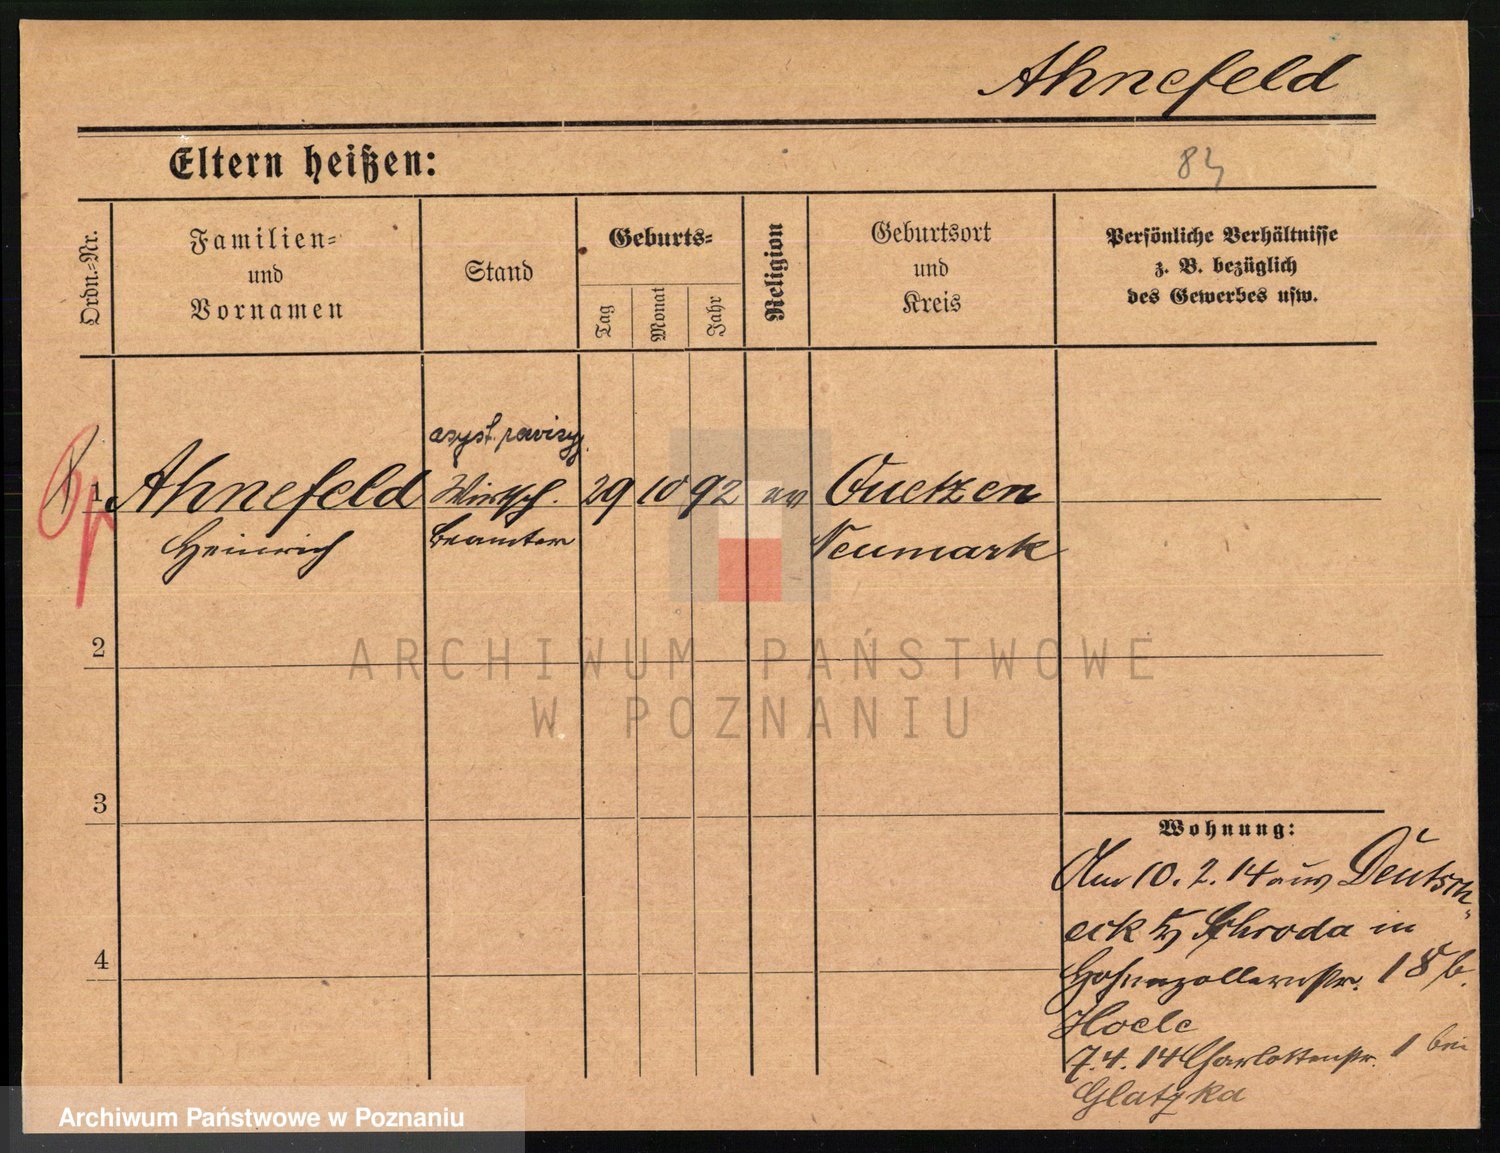 Ahnefeld
Eltern heißen:
Ordn.=Nr.
Familien=
und
Vornamen
Stand
Geburts=
Tag
Monat
Jahr
Religion
Geburtsort
und
Kreis
Persönliche Verhältnisse
z. B. bezüglich
des Gewerbes usw.
1 Ahnefeld Wirtsch. 29 10 92 ev
Heinrich beamter Neumark
2
ARCHIWUM PAŃSTWOWE
W POZNANIU
3
Wohnung:
Am 10. 2. 14 aus Deutsch=
eck Schroda in
Hohenzollernstr. 18 b.
7.4.14 Charlottenstr. 1 bei
Glatzka
4
Archiwum Państwowe w Poznaniu